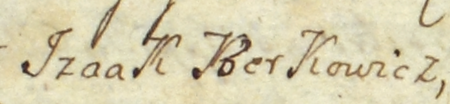 Izaak Berkowicz,